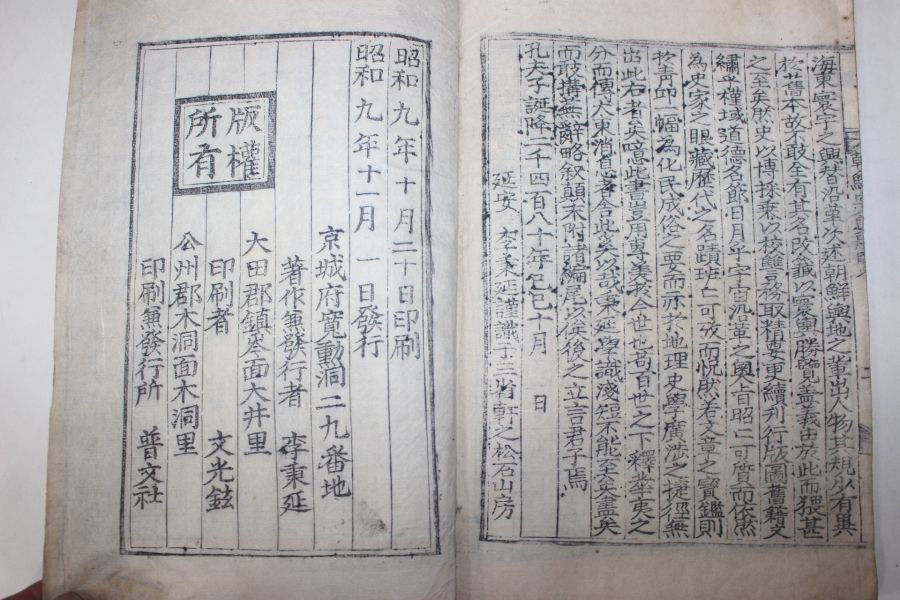 海東寰宇之興替沿革次述朝鮮輿地之華出人物其規少有異
於舊本故不敢全有其名改籤以寰輿勝覽盖義由於此而猥甚
之至矣然史以博採乘以校讐務取精要更續刋行版圖舊籍文
繡乎槿域道德名節日月乎宇宙沉革之奧古自昭二可質而依然
為史家之眼藏歷代之名蹟班二可攷而怳然若文章之寶鑑則
於靑邱一幅為化民成俗之要而亦於地理史學廣涉之捷徑無
出此右者矣噫此書豈用專美於今世也哉百世之下釋東夷之
分而懷大東消息者舍此奚以哉秉延學識淺短不能至矣盡矣
而敢搆蕪辭略叙顚末附諸編尾以俟後之立言君子焉
孔夫子誕降二千四百八十年己巳十月 日
延安 李秉延謹識于三省軒之松石山房
昭和九年十月二十日印刷
昭和九年十一月一日發行
京城府寬勳洞二九番地
著作兼發行者 李秉延
大田郡鎮岑面大井里
印刷者 文光鉉
公州郡木洞面木洞里
印刷兼發行所 普文社
版權
所有